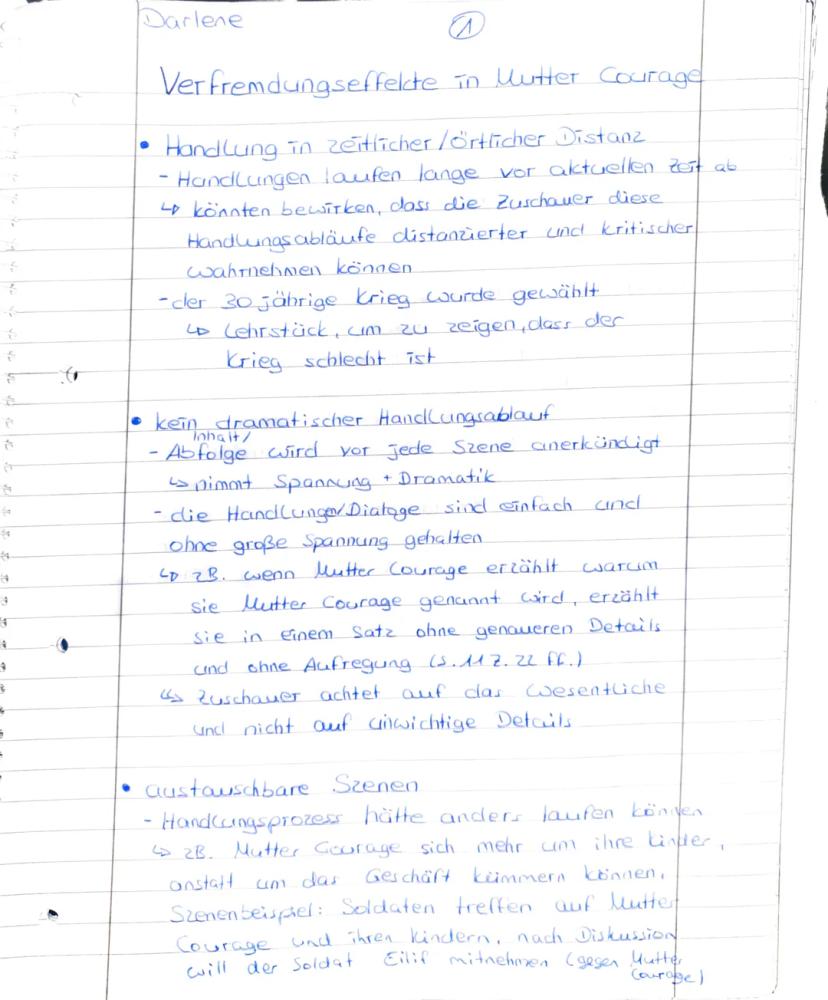 Darlene
1
Verfremdungseffekte in Mutter Courage
• Handlung in zeitlicher/örtlicher Distanz
- Handlungen laufen lange vor aktuellen Zeit ab
↳ könnten bewirken, dass die Zuschauer diese
Handlungsabläufe distanzierter und kritischer
wahrnehmen können
- der 30 jährige Krieg wurde gewählt
↳ Lehrstück, um zu zeigen, dass der
Krieg schlecht ist
• kein dramatischer Handlungsablauf
Inhalt/
- Abfolge wird vor jede Szene anerkündigt
↳ nimmt Spannung + Dramatik
- die Handlungen/Dialoge sind einfach und
ohne große Spannung gehalten
↳ zB. wenn Mutter Courage erzählt warum
sie Mutter Courage genannt wird, erzählt
sie in einem Satz ohne genaueren Details
und ohne Aufregung (S. 11 Z. 22 ff.)
↳ Zuschauer achtet auf das Wesentliche
und nicht auf unwichtige Details
• austauschbare Szenen
- Handlungsprozess hätte anders laufen können
↳ zB. Mutter Courage sich mehr um ihre Kinder,
anstatt um das Geschäft kümmern können.
Szenenbeispiel: Soldaten treffen auf Mutter
Courage und ihren Kindern, nach Diskussion
will der Soldat Eilif mitnehmen (gegen Mutter
Courage)